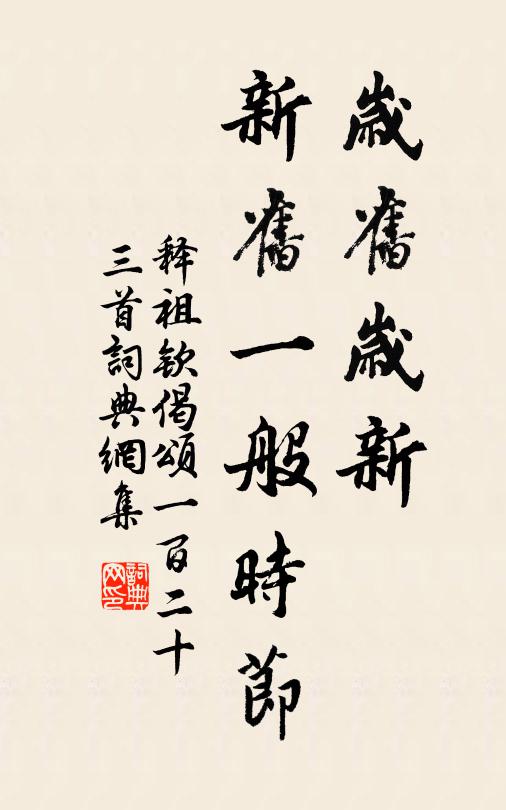 歲舊歲新
新舊一般時節
释祖欽偈頌一百二十
三首詞典網集
詞典
网印